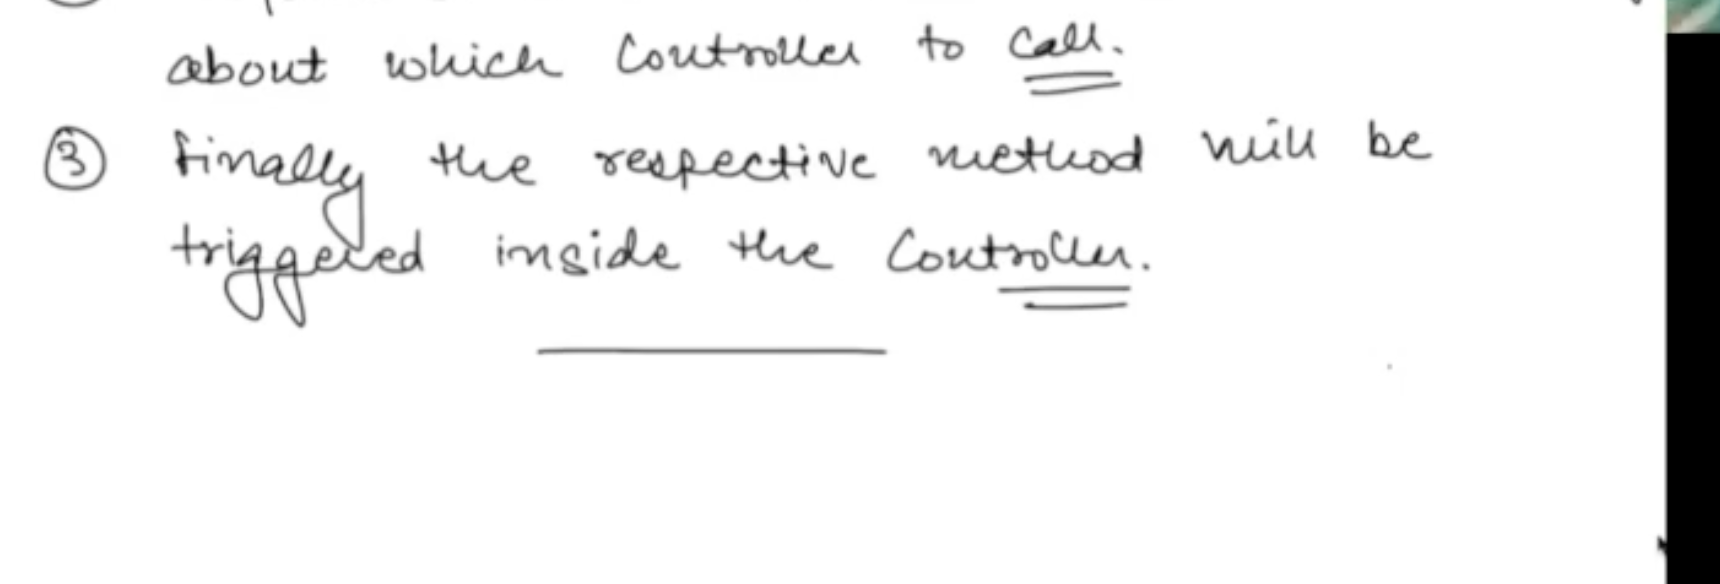 about which Controller to Call.
③ Finally the respective method will be
triggered inside the Controller.